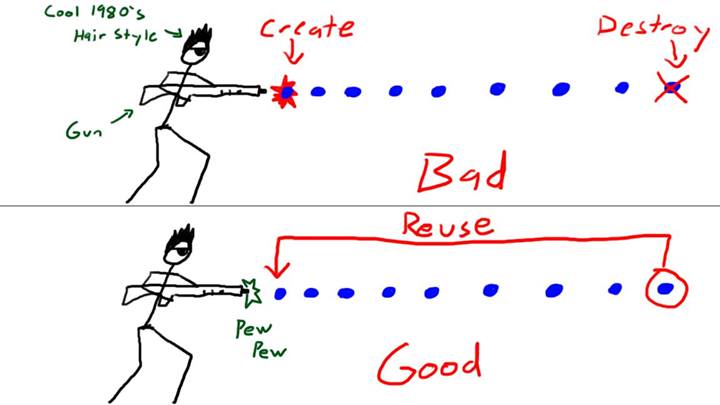 Cool 1980's
Hair Style
Create
Destroy
Gun
Bad
Reuse
Pew
Pew
Good